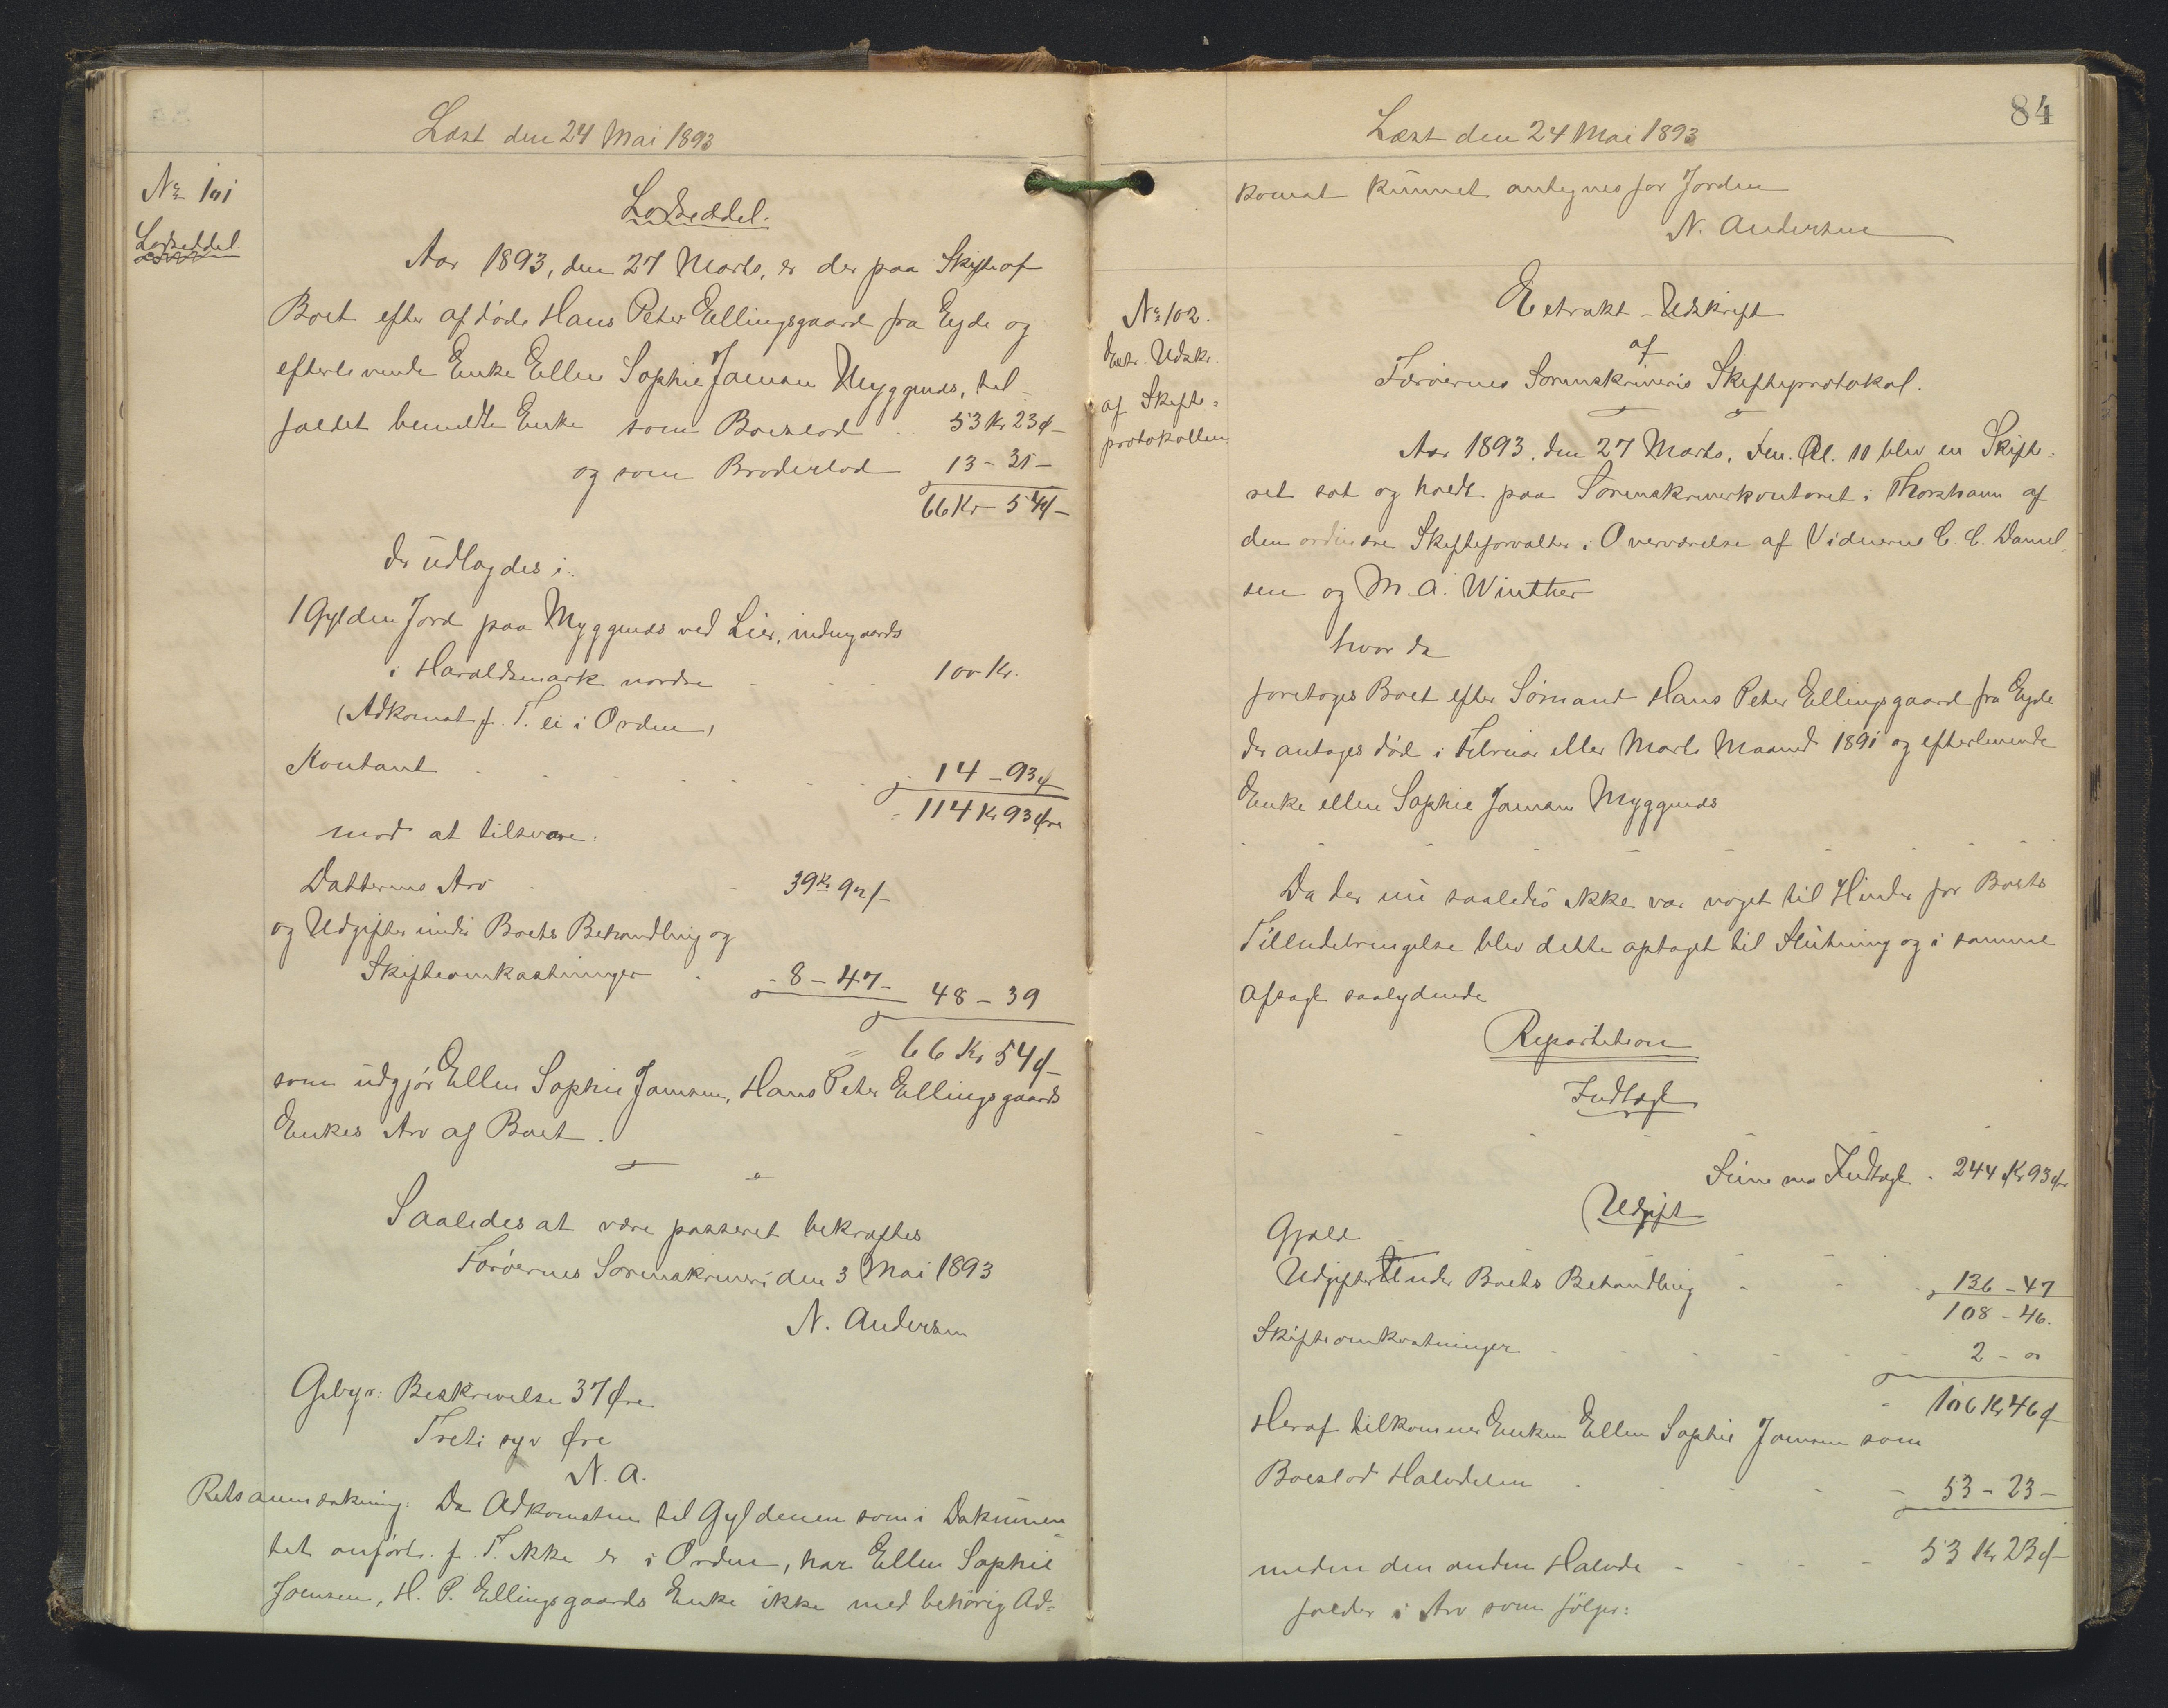 Læst den 24 Mai 1893
No 101
Lodseddel.
Lodseddel.
Aar 1893, den 27 Marts, er der paa Skifte af
Boet efter afdøde Hans Peter Ellingsgaard fra Eyde og
efterlevende Enke Ellen Sophie Joensen Myggenæs, til-
faldet bemeldte Enke som Boeslod .. 53 Kr 23 Ø
og som Broderlod 13 - 31 -
66 Kr - 54 Ø -
der udlagdes i:
1 Gylden Jord paa Myggenæs ved Lier, indengaards
i Haraldsmark nordre 100 Kr.
(Adkomst p. T. ei i Orden)
Kontant 14 - 93 Ø
114 Kr 93 Øre
mod at tilsvare:
Datterens Arv 39 Kr 92 Ø
og Udgifter under Boets Behandling og
Skifteomkostninger - 8 - 47 - 48 - 39
= 66 Kr 54 Ø
som udgjør Ellen Sophie Joensen, Hans Peter Ellingsgaards
Enkes Arv af Boet.
Saaledes at være passeret bekræftes
Færøernes Sorenskriveri den 3 Mai 1893
N. Andersen
Gebyr: Beskrivelse 37 Øre
Treti syv Øre
N. A.
Retsanmærkning: Da Adkomsten til Gyldenen som i Dokumen-
tet anført. p. T. ikke er i Orden, har Ellen Sophie
Joensen, H. P. Ellingsgaards Enke ikke med behørig Ad-
84
Læst den 24 Mai 1893
komst kunnet antegnes for Jorden
N. Andersen
No 102.
Extr. Udskr.
af Skifte-
protokollen
Extrakt-Udskrift
af
Færøernes Sorenskriveris Skifteprotokol.
Aar 1893, den 27 Marts, Fm. Kl. 10 blev en Skifte-
ret sat og holdt paa Sorenskriverkontoret i Thorshavn af
den ordinære Skifteforvalter i Overværelse af Vidnerne C. C. Daniel-
sen og M. A. Winther
hvor da
foretoges Boet efter Sømand Hans Peter Ellingsgaard fra Eyde
der antages død i Februar eller Marts Maaned 1891 og efterlevende
Enke ellen Sophie Joensen Myggenæs
Da der nu saaledes ikke var noget til Hinder for Boets
Tilendebringelse blev dette optaget til Slutning og i samme
afsagt saalydende
Repartition
Indtægt
Summa Indtægt . 244 Kr 93 Ør
Udgift
Gjæld
Udgifter under Boets Behandling 136 - 47
108 - 46.
Skifteomkostninger 2 - "
106 Kr 46 Ø
Heraf tilkommer Enken Ellen Sophie Joensen som
Boeslod Halvdelen 53 - 23 -
medens den anden Halvde 53 Kr 23 Ø
falder i Arv som følger: